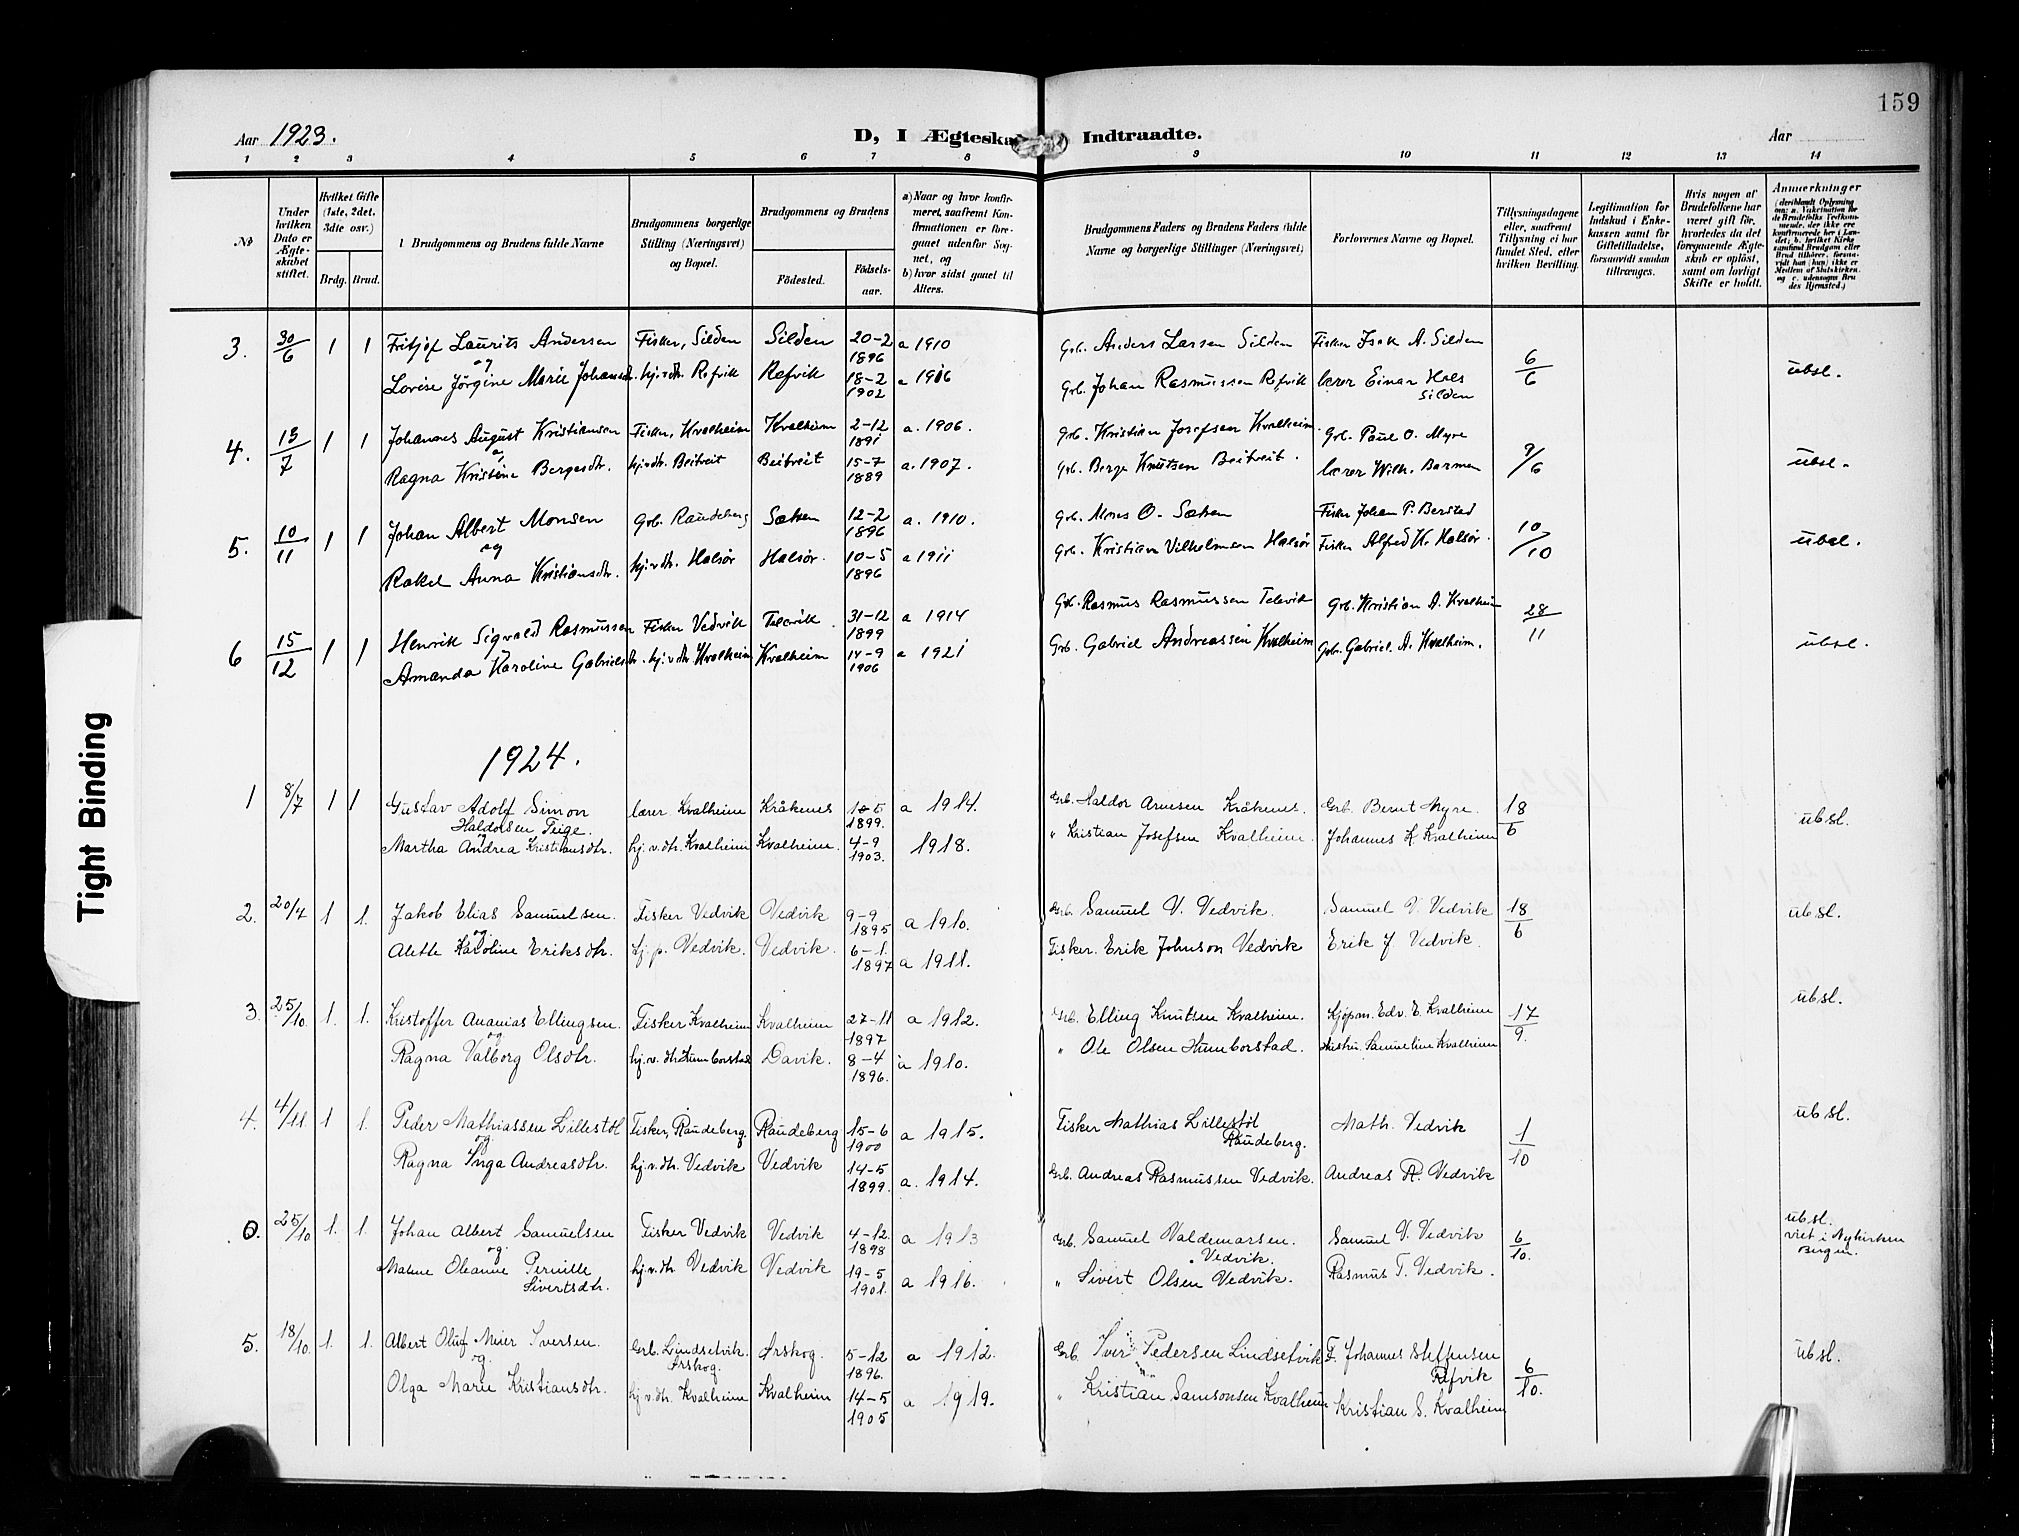 159
Aar 1923.
D, I Ægteska Indtraadte.
Aar
1 2 3 4 5 6 7 8 9 10 11 12 13 14
№
Under hvilken Dato er Ægteskabet stiftet.
Hvilket Gifte (1ste, 2det, 3die osv.)
Brdg. Brud.
Brudgommens og Brudens fulde Navne
Brudgommens borgerlige Stilling (Næringsvei) og Bopæl.
Brudgommens og Brudens
Födested.
Födselsaar.
a) Naar og hvor konfirmeret, saafremt Konfirmationen er foregaaet udenfor Sognet, og
b) hvor sidst gaaet til Alters.
Brudgommens Faders og Brudens Faders fulde Navne og borgerlige Stillinger (Næringsvei)
Forlovernes Navne og Bopæl.
Tillysningsdagene eller, saafremt Tillysning ei har fundet Sted, efter hvilken Bevilling.
Legitimation for Indskud i Enkekassen samt for Giftetilladelse, forsaavidt saadan tiltrænges.
Hvis nogen af Brudefolkene har været gift för, hvorledes da det foregaaende Ægteskab er oplöst, samt om lovligt Skifte er holdt.
Anmerkninger
(deriblandt Oplysning om: a. Vakcination for de Brudefolks Vedkommende, der ikke ere konfirmerede her i Landet; b. hvilket Kirkesamfund Brudgom eller Brud tilhörer, forsaavidt han (hun) ikke er Medlem af Statskirken, og c. udensogns Brudes Hjemsted.)
3. 30/6 1 1 Fritjof Laurits Andersen Fisker, Silden Silden 20-2 1896 a 1910 Grb. Anders Larsen Silden Fisker Isak A. Silden 6/6 ubsl.
og
Lovise Jörgine Marie Johansdtr. hj.v.dtr. Refvik Refvik 18-2 1902 a 1916 Grb. Johan Rasmussen Refvik lærer Einar Hals Silden
4. 13/7 1 1 Johannes August Kristiansen Fisker, Kvalheim Kvalheim 2-12 1891 a. 1906. Grb. Kristian Josefsen Kvalheim. Grb. Paul O. Myre 9/6 ubsl.
og
Ragna Kristine Bergesdtr. hj.v.dtr. Beitveit Beitveit 15-7 1889 a. 1907. Grb. Berge Knutsen Beitveit. lærer Wilh. Barmen
5. 10/11 1 1 Johan Albert Monsen Grb. Raudeberg Sætren 12-2 1896 a. 1910. Grb. Mons O. Sætren Fisker Johan P. Berstad 10/10 ubsl.
og
Rakel Anna Kristiansdtr. hj.v.dtr. Halsör Halsör. 10-5 1896 a 1911 Grb. Kristian Vilhelmsen Halsör Fisker Alfred K. Halsör.
6 15/12 1 1 Henrik Sigvald Rasmussen Fisker Vedvik 31-12 1899 a 1914 Grb. Rasmus Rasmussen Grb. Kristian A. Kvalheim 28/11 ubsl.
Amanda Karoline Gabrielsdtr. hj.v.dtr Kvalheim Kvalheim 14-9 1906 a 1921 Grb. Gabriel Andreassen Kvalheim Grb. Gabriel A. Kvalheim.
1924.
1 8/7 1 1 Gustav Adolf Simon Haldorsen Teige. lærer Kvalheim Kråkenes 5 1899. a 1914. Grb. Haldor Arnesen Kråkenes. Grb. Bernt Myre 18/6 ubsl.
og
Martha Andrea Kristiansdtr. hj.v.dtr. Kvalheim Kvalheim. 4-9 1903. 1918. " Kristian Josefsen Kvalheim. Johannes K Kvalheim
2. 20/4 1 1. Jakob Elias Samuelsen Fisker Vedvik Vedvik 9-9 1895 a 1910. Grb. Samuel V. Vedvik. Samuel V. Vedvik 18/6 ubsl.
og
Alette Karoline Eriksdtr. hj. p. Vedvik. Vedvik. 6-1. 1897 a 1911. Fisker. Erik Johnson Vedvik Erik J Vedvik.
3. 25/10 1. 1. Kristoffer Ananias Ellingsen. Fisker Kvalheim Kvalheim 27-11 1897 a 1912. Grb. Elling Knutsen Kvalheim. Kjøpm. Edv. E. Kvalheim 17/9. ubsl.
og
Ragna Valborg Olsdtr. hj.v.dtr. Humborstad Davik. 8-4 1896. a 1910. " Ole Olsen Humborstad. Hustru Samueline Kvalheim
4. 4/11 1 1. Peder Mathiassen Lillestöl Fisker, Raudeberg. Raudeberg 15-6 1900 a 1915. Fisker Mathias Lillestöl Raudeberg. Math. Vedvik 1/10 ubsl.
og
Ragna Inga Andreasdtr. hj.v.dtr. Vedvik Vedvik 14-5 1899. a. 1914. Grb. Andreas Rasmussen Vedvik. Andreas R. Vedvik
0. 25/10 1. 1. Johan Albert Samuelsen Fisker Vedvik Vedvik 4-12. 1898 a 1913 Grb. Samuel Valdemarsen. Vedvik. Samuel V. Vedvik 6/10. ubsl. viet i Nykirken Bergen.
og
Malene Oleanne Pernille Sivertsdtr. hj.v.dtr Vedvik Vedvik 19-5 1901. a 1916. " Sivert Olsen Vedvik. Rasmus T. Vedvik.
5. 18/10. 1. 1. Albert Oluf Meier Iversen. Grb. Lindsetvik. Ørskog. Ørskog. 5-12 1896. a 1912. Grb. Iver Pedersen Lindsetvik F. Johannes Steffensen Refvik 6/10. ubsl.
og
Olga Marie Kristiansdtr. hj.v.dtr. Kvalheim Kvalheim 14-5 1905 a 1919. " Kristian Samsonsen Kvalheim Kristian S. Kvalheim
Tight Binding